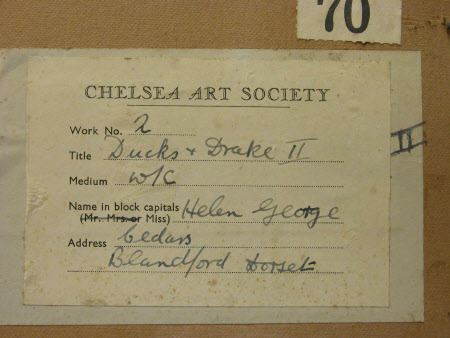 70
CHELSEA ART SOCIETY
Work No. 2
Title Ducks + Drake II
Medium W/C
Name in block capitals Helen George
(Mr. Mrs. or Miss)
Address Cedars
Blandford Dorset
II